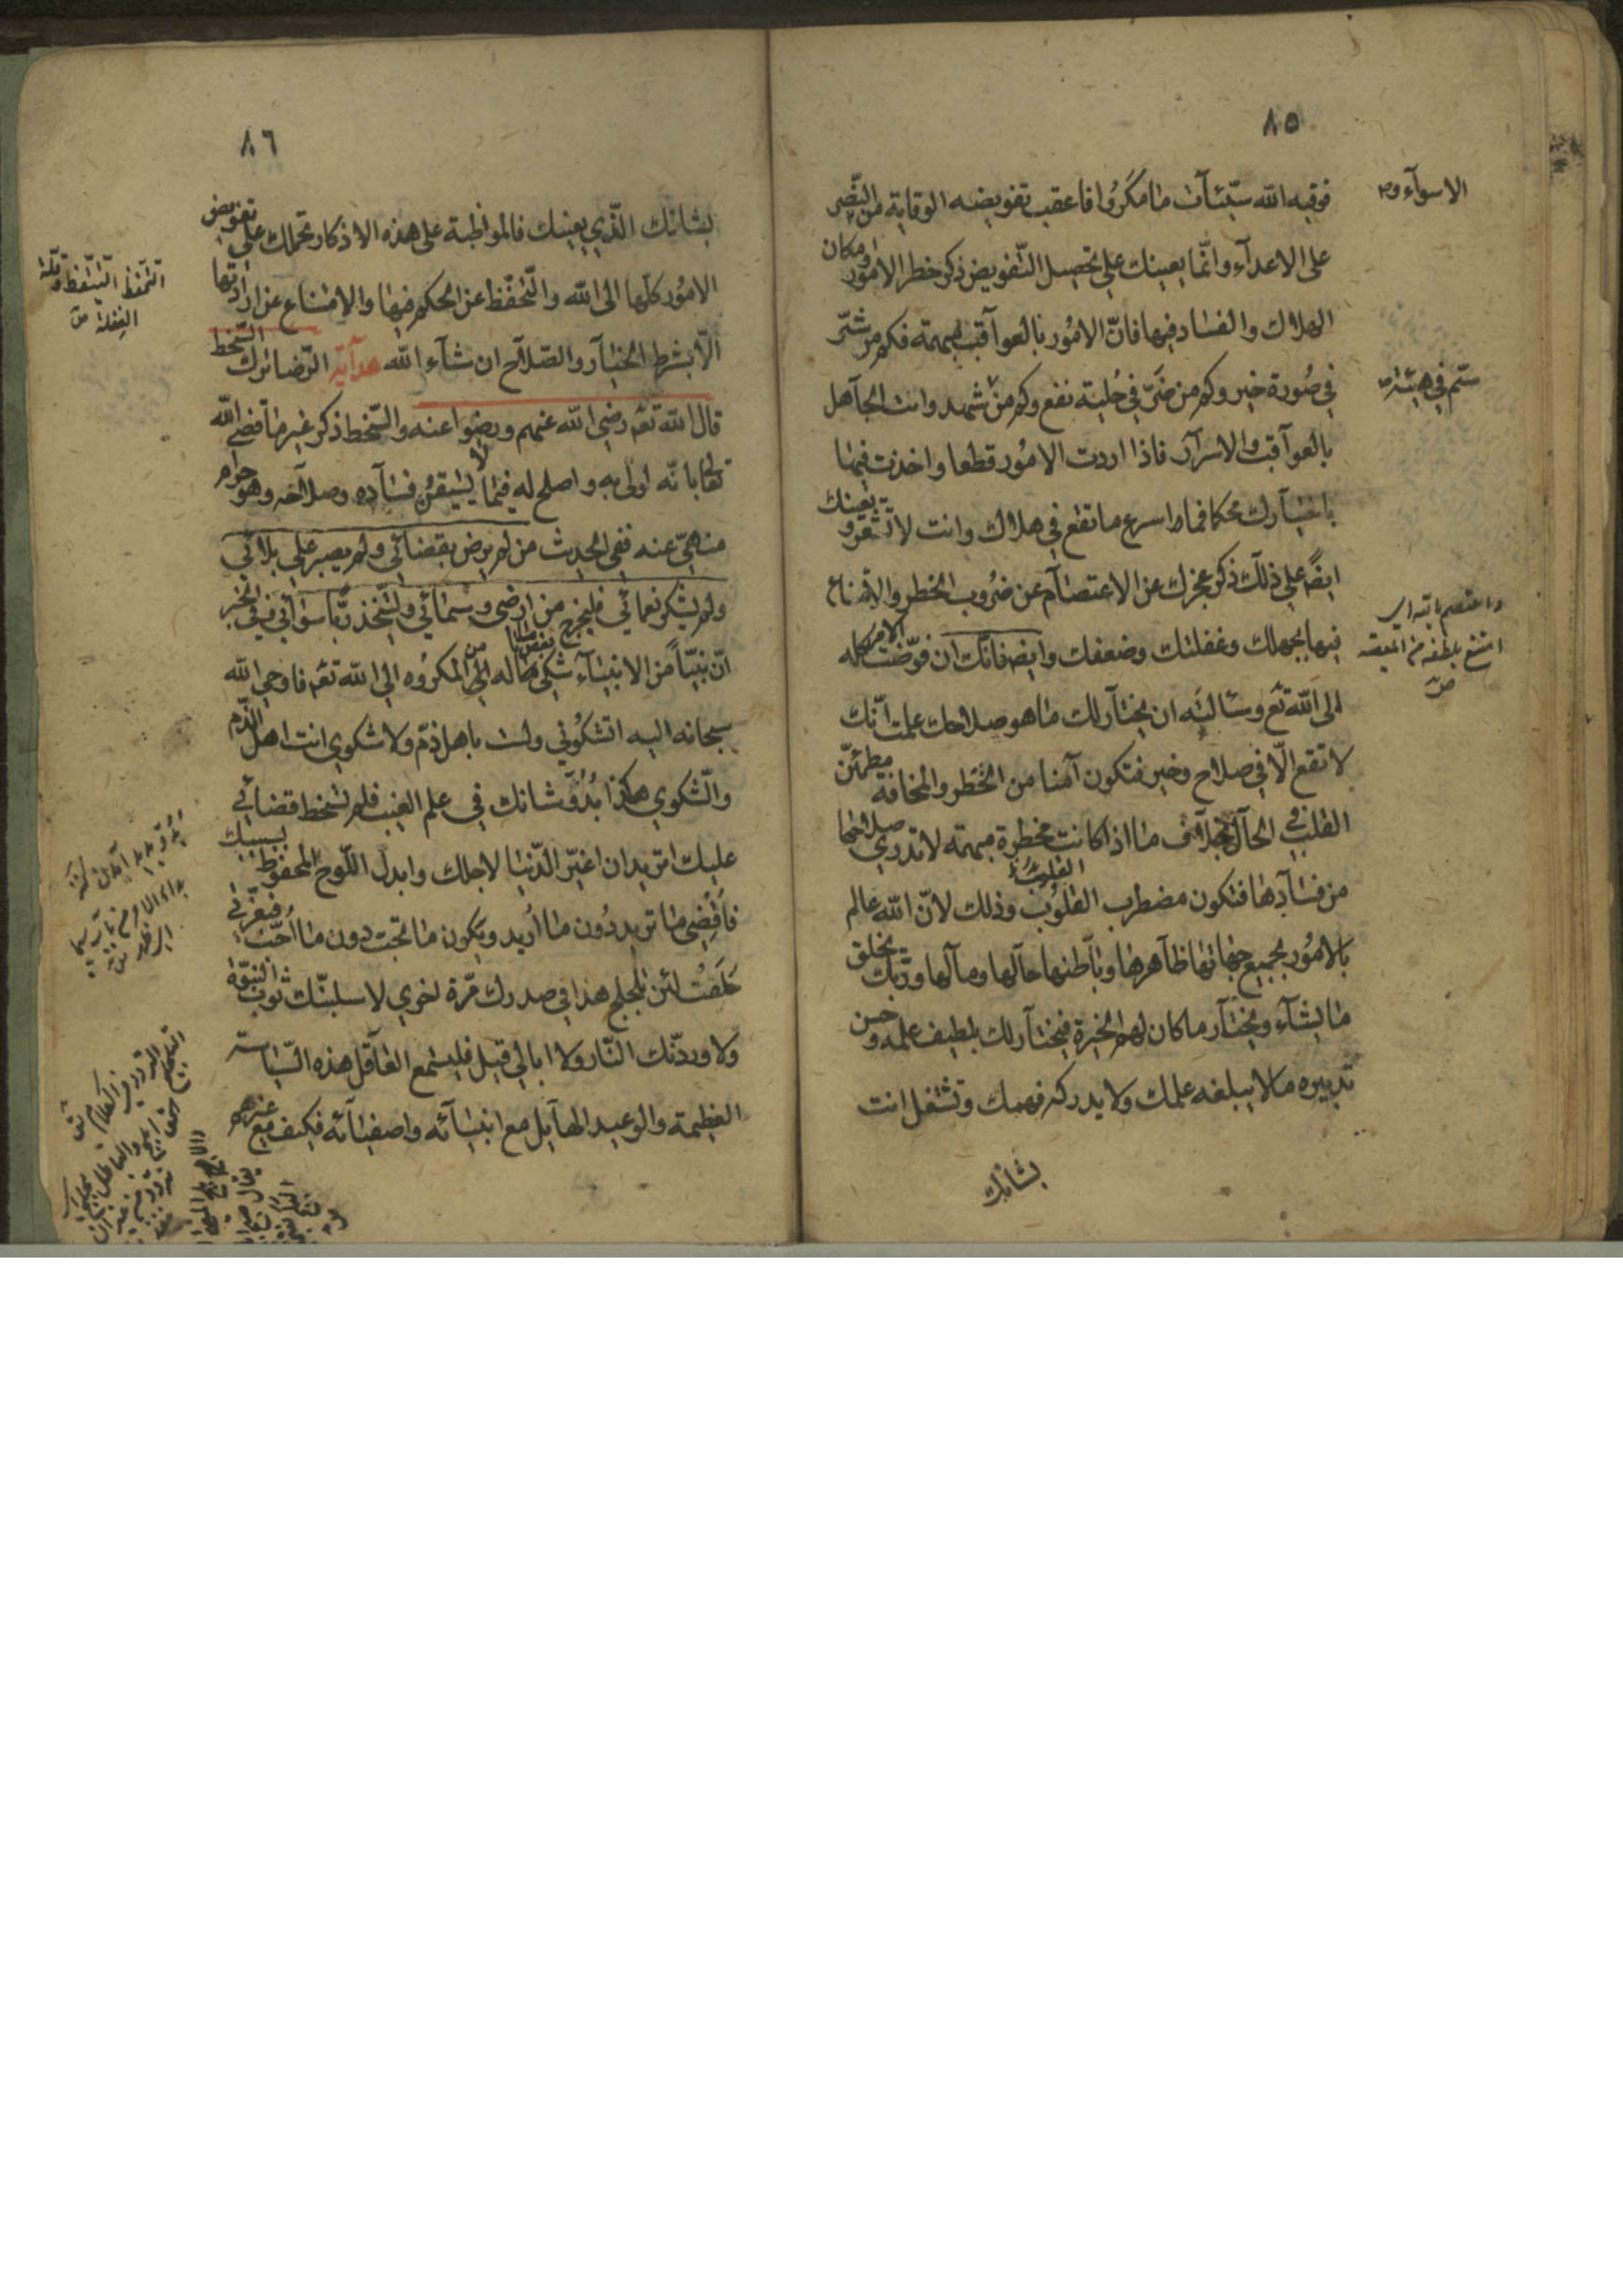 ٨٥
فوقيه الله سيّئات ما مكروا فاعقب تفويضه الوقاية من النّصر
الاسوآء و
على الاعدآء وانّما يعينك على تحصيل التّفويض ذكر خطر الامور ومكان
الهلاك والفساد فيها فانّ الامور بالعواقب مبهمة فكم من شرّ
في صورة خير وكم من ضرّ في حلية نفع وكم من سمّ في شهد وانت الجاهل
سمّ في هيئة
بالعواقب والاسرار فاذا اردت الامور قطعا واخذت فيها
باختيارك محكما فما اسرع ما تقع في هلاك وانت لا تشعر ويعينك
ايضًا على ذلك ذكر عجزك عن الاعتصام عن ضروب الخطر والامتناع
واعتصم بالله اي
امتنع بلطفه من المعصية
ص
فيها بجهلك وغفلتك وضعفك وايضا فانّك ان فوّضت الامر كله
الى الله تع وسئالته ان يختار لك ما هو صلاحك علمت انّك
لا تقع الّا في صلاح وخير فتكون آمنا من الخطر والمخافة مطمئنّ
القلب في الحال بخلاف ما اذا كانت مخطرة مبهمة لا تدري صلاحها
من فسادها فتكون مضطرب القلوب وذلك لانّ الله عالم
بالامور بجميع جهاتها ظاهرها وباطنها حالها ومآلها وربّك يخلق
ما يشآء ويختار ما كان لهم الخيرة فيختار لك بلطيف علمه وحسن
تدبيره ما لا يبلغه علمك ولا يدركه فهمك وتشتغل انت
بشانك
٨٦
بشانك الّذي يعينك فالمواظبة على هذه الاذكار تحملك على تفويض
الامور كلّها الى الله والتّحفّظ عن الحكم فيها والامتناع عن ارادتها
التّحفّظ التّيقّظ وقلّة
الغفلة ص
الّا بشرط الخيار والصّلاح ان شآء الله هداية الرّضا ترك السّخط
قال الله تعه رضي الله عنهم ورضوا عنه والسّخط ذكر غير ما قضى الله
تعالى بانّه اولى به واصلح له فيما لا يستيقن فساده وصلاحه وهو حرام
منهيّ عنه ففي الحديث من لم يرض بقضائي ولم يصبر على بلائي
ولم يشكر نعمائي فليخرج من ارضي وسمائي وليتّخذ ربّا سوائي وفي الخبر
انّ نبيّاً من الانبيآء شكى بعض ما ناله من المكروه الى الله تعه فاوحى الله
سبحانه اليه اتشكوني ولست باهل ذمّ ولا شكوى انت اهل الذّم
والشّكوى هكذا بدو شانك في علم الغيب فلم تسخط قضائي
عليك اتريد ان اغيّر الدّنيا لاجلك وابدل اللّوح المحفوظ بسببك
فاقضي ما تريد دون ما اريد ويكون ما تحبّ دون ما احبّ فبعزّتي
حلفت لئن تلجلج هذا في صدرك مرّة اخرى لاسلبنّك ثوب النبوّة
ولاوردنّك النّار ولا ابالي قيل فليسمع العاقل هذه السّياسة
العظيمة والوعيد الهايل مع انبيآئه واصفيآئه فكيف مع غيرهم